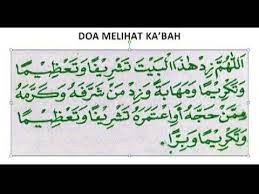 DOA MELIHAT KA'BAH
اَللّٰهُمَّ زِدْ هٰذَا الْبَيْتَ تَشْرِيْفًا وَتَعْظِيْمًا
وَتَكْرِيْمًا وَمَهَابَةً وَزِدْ مَنْ شَرَّفَهُ وَكَرَّمَهُ
مِمَّنْ حَجَّهُ أَوِ اعْتَمَرَهُ تَشْرِيْفًا وَتَعْظِيْمًا
وَتَكْرِيْمًا وَبِرًّا.